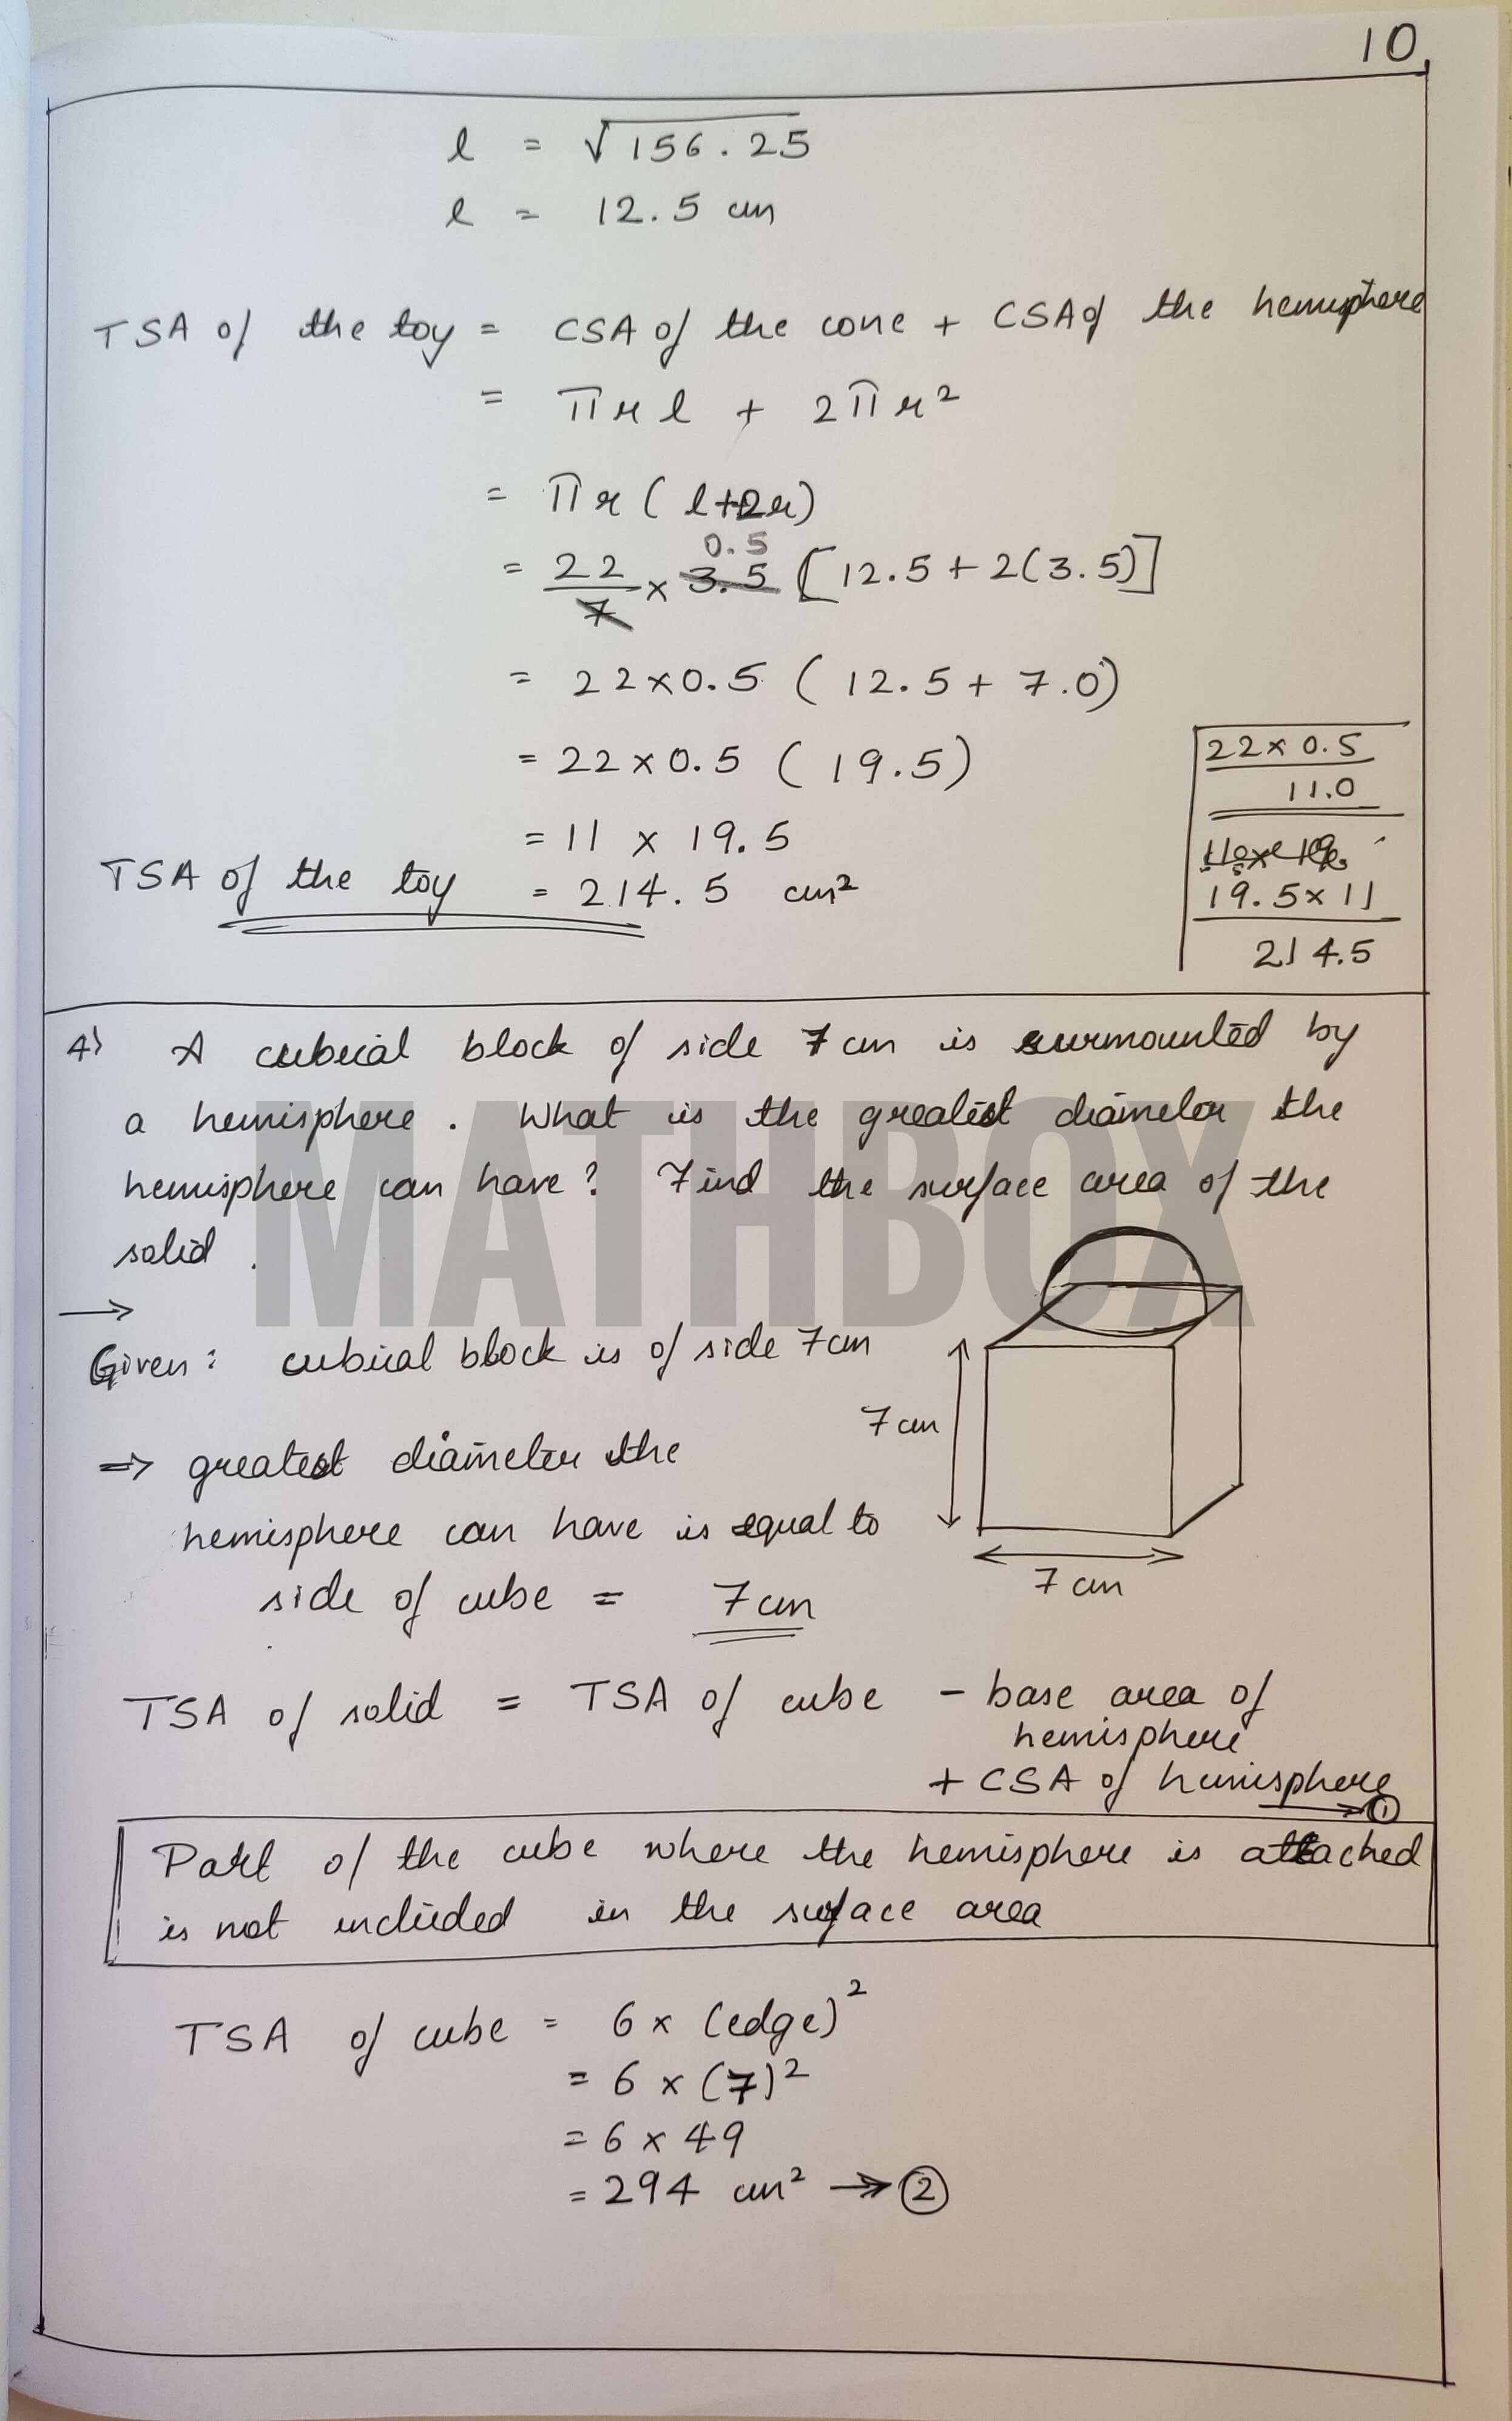 10
l = √156.25
l = 12.5 cm
TSA of the toy = CSA of the cone + CSA of the hemisphere
= πrl + 2πr²
= πr (l+2r)
0.5
= 22/7 × 3.5 [12.5 + 2(3.5)]
= 22×0.5 (12.5 + 7.0)
= 22×0.5 (19.5)
= 11 × 19.5
TSA of the toy = 214.5 cm²
22×0.5
11.0
19.5×11
214.5
4) A cubical block of side 7 cm is surmounted by
a hemisphere. What is the greatest diameter the
hemisphere can have? Find the surface area of the
solid.
MATHBOX
→
Given: cubical block is of side 7cm
7 cm
7 cm
⇒ greatest diameter the
hemisphere can have is equal to
side of cube = 7cm
TSA of solid = TSA of cube - base area of
hemisphere
+ CSA of hemisphere
→ ①
Part of the cube where the hemisphere is attached
is not included in the surface area
TSA of cube = 6 × (edge)²
= 6 × (7)²
= 6 × 49
= 294 cm² → ②